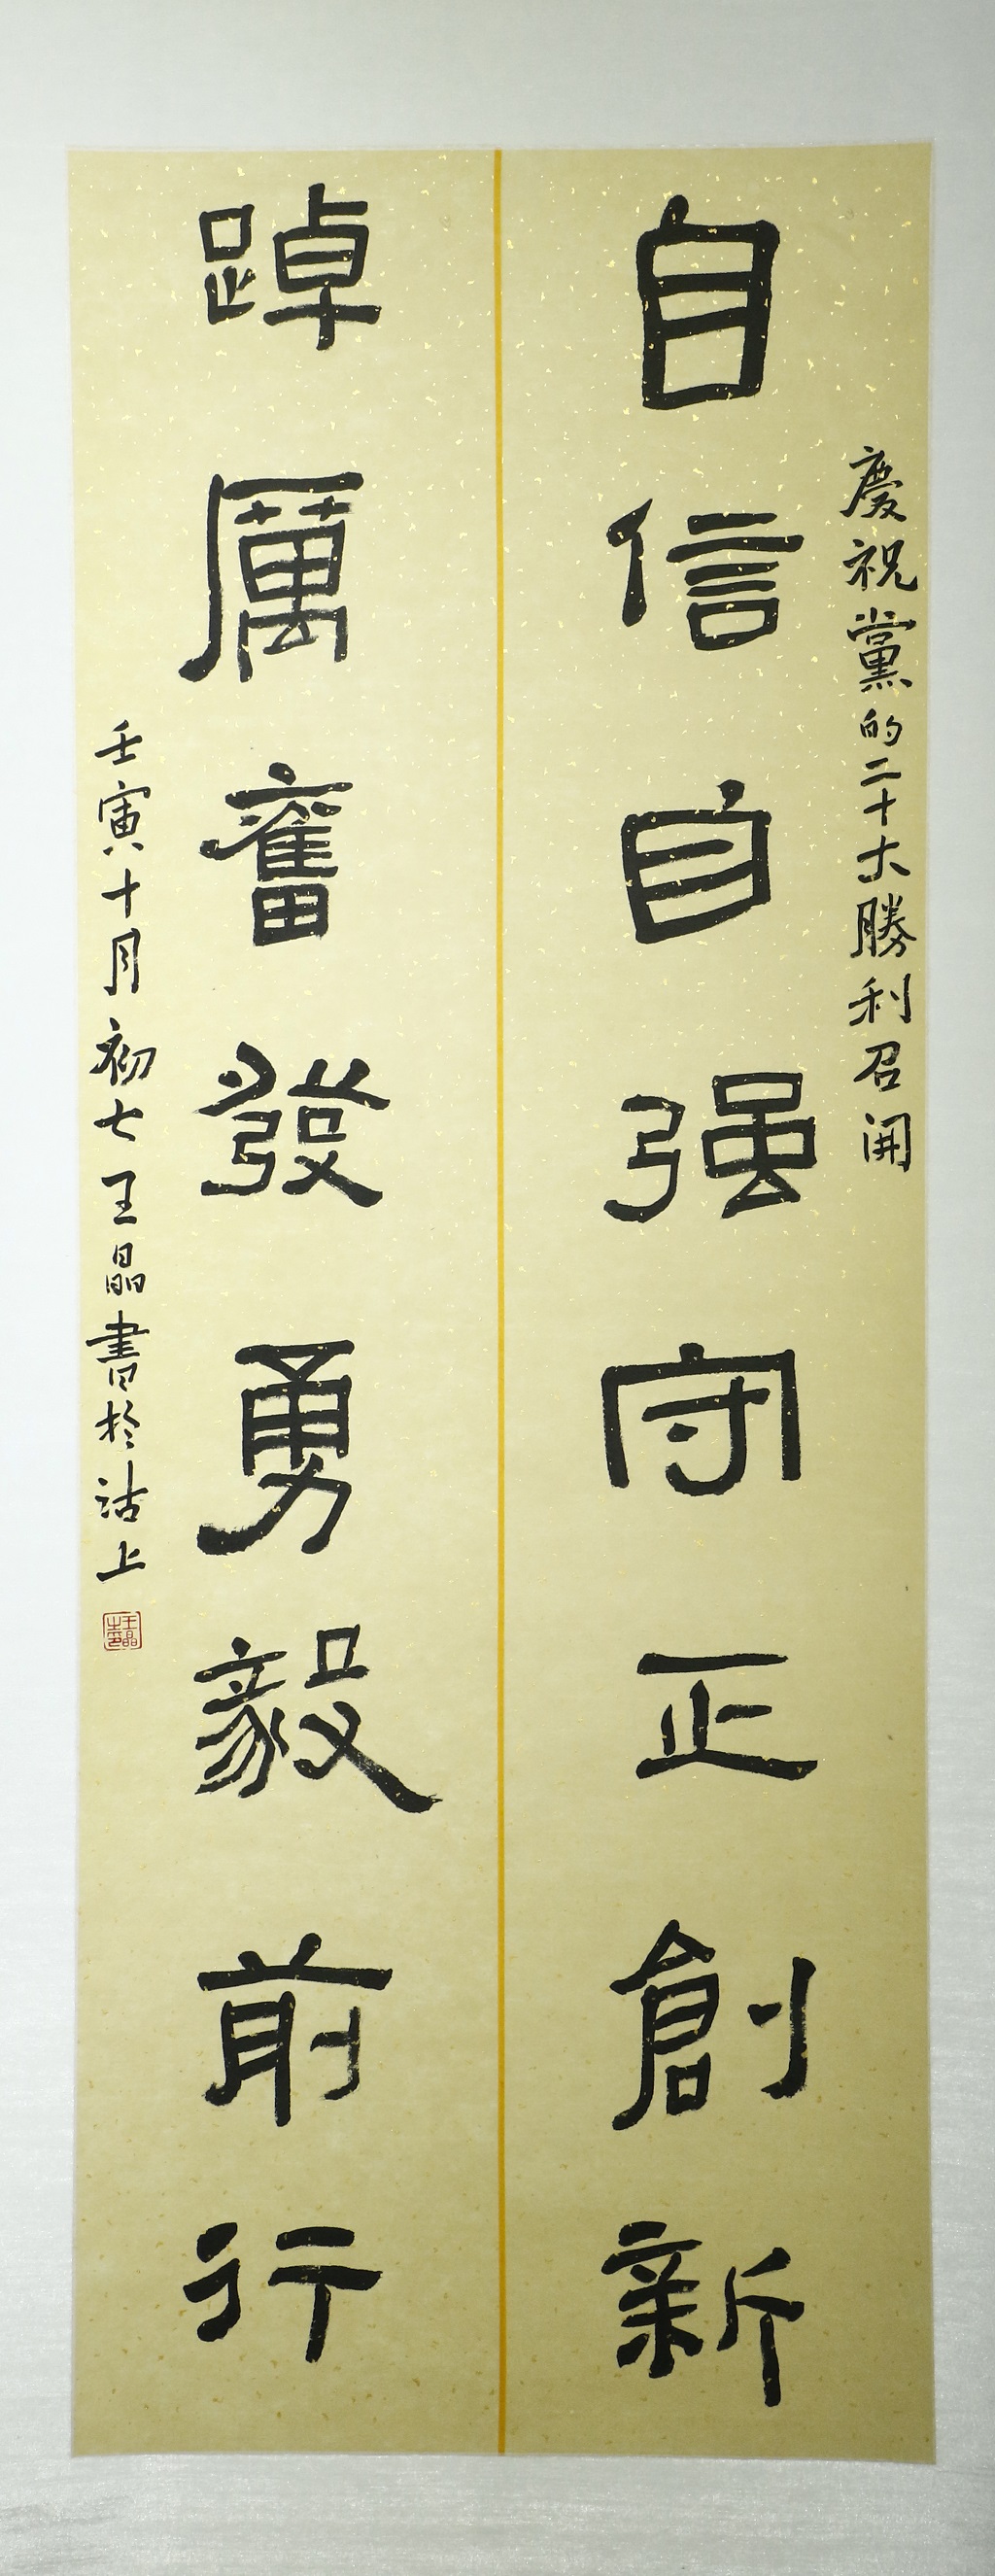 慶祝黨的二十大勝利召開
自信自强守正創新
踔厲奮發勇毅前行
壬寅十月初七王晶書於沽上